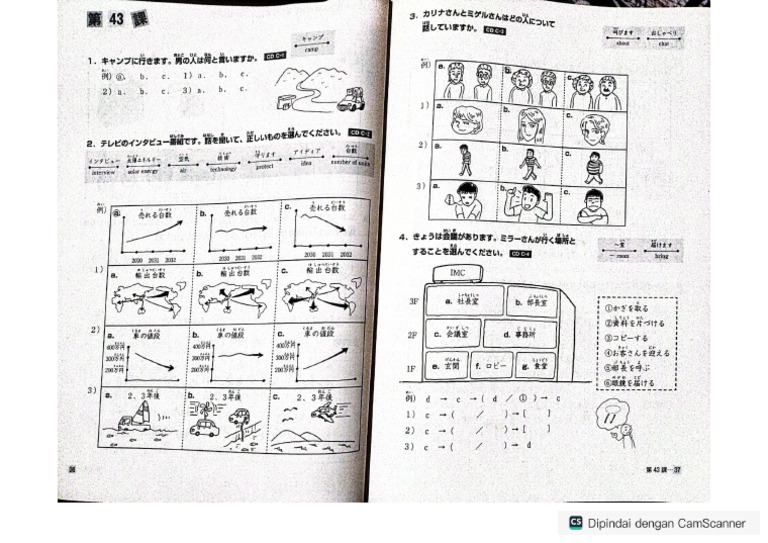 第 43 課
キャンプ
camp
1. キャンプに行きます。男の人は何と言いますか。 CD C-1
例) ⓐ. b. c. 1) a. b. c.
2) a. b. c. 3) a. b. c.
2. テレビのインタビュー番組です。話を聞いて、正しいものを選んでください。 CD C-2
インタビュー 太陽エネルギー 空気 技術 守ります アイディア 台数
interview solar energy air technology protect idea number of units
例) ⓐ 売れる台数 b. 売れる台数 c. 売れる台数
2030 2031 2032 2030 2031 2032 2030 2031 2032
1) a. 輸出台数 b. 輸出台数 c. 輸出台数
2) a. 車の値段 b. 車の値段 c. 車の値段
400万円 400万円 400万円
300万円 300万円 300万円
200万円 200万円 200万円
3) a. 2、3年後 b. 2、3年後 c. 2、3年後
36
3. カリナさんとミゲルさんはどの人について
話していますか。 CD C-3
叫びます おしゃべり
shout chat
例) a. b. c.
1) a. b. c.
2) a. b. c.
3) a. b. c.
4. きょうは会議があります。ミラーさんが行く場所と
することを選んでください。 CD C-4
〜室 届けます
〜 room bring
IMC
3F a. 社長室 b. 部長室
2F c. 会議室 d. 事務所
1F e. 玄関 f. ロビー g. 食堂
①かぎを取る
②資料を片づける
③コピーする
④お客さんを迎える
⑤部長を呼ぶ
⑥眼鏡を届ける
例) d → c →( d / ① )→ c
1) c →( / )→[ ]
2) c →( / )→[ ]
3) c →( / )→ d
第 43 課—37
CS Dipindai dengan CamScanner